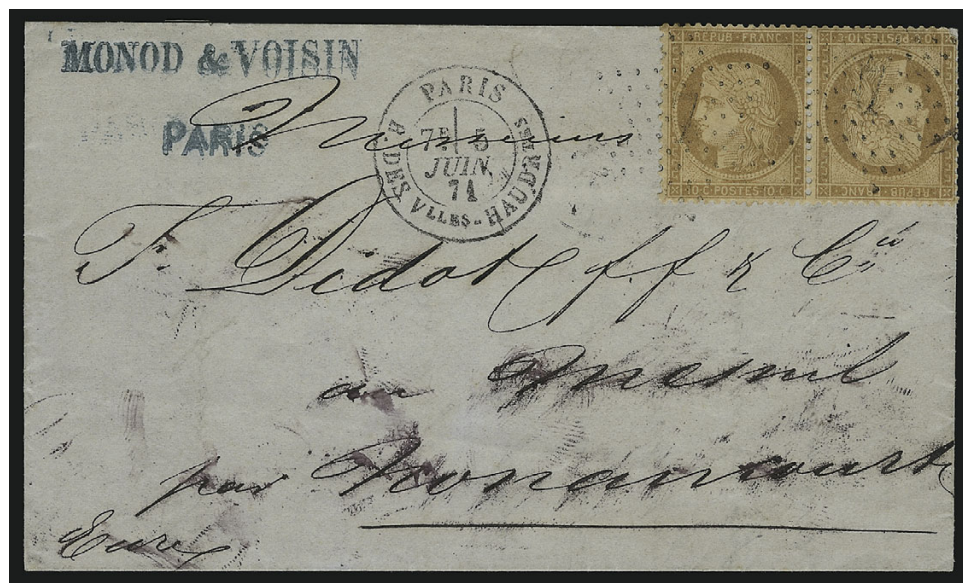 MONOD & VOISIN
PARIS
PARIS
7E 5
JUIN
71
R. DES VLLES-HAUDRTTES
REPUB·FRANC
10·C·POSTES·10·C
10·C·POSTES·10·C
REPUB·FRANC
Messieurs
F. Didot ff & Cie
au Mesnil
par Nonancourt
Eure